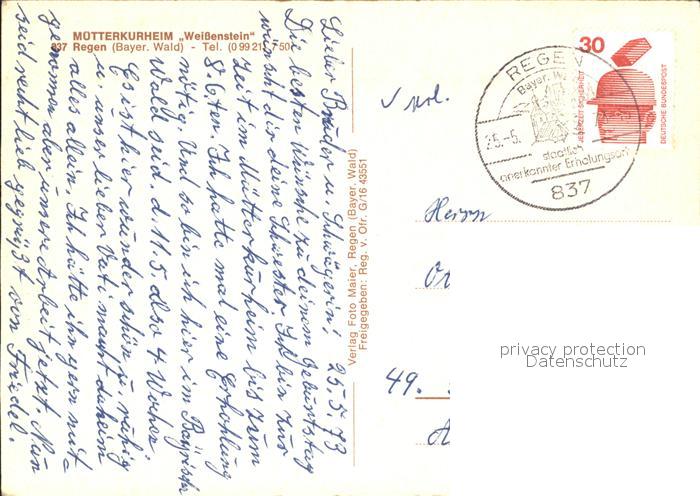 MÜTTERKURHEIM „Weißenstein"
837 Regen (Bayer. Wald) - Tel. (0 99 21) 7 50
Lieber Bruder u. Schwägerin! 25.5.73
Die besten Wünsche zu deinem Geburtstag
wünscht dir deine Schwester. Ich bin zur
Zeit im Mütterkurheim bis zum
8.6.ten. Ich hatte mal eine Erholung
nötig. Und so bin ich hier im Bayrischen
Wald seid. d. 11.5. also 4 Wochen.
Es ist hier wunderschön u. ruhig
u. unser lieber Vati macht daheim
alles allein. Ich hätte ihn gern mit
genommen aber unsere Arbeit jetzt. Nun
seid recht lieb gegrüßt von Friedel.
Verlag Foto Maier, Regen (Bayer. Wald)
Freigegeben: Reg. v. Ofr. G/16 43551
30
JEDERZEIT SICHERHEIT
DEUTSCHE BUNDESPOST
REGEN
Bayer. W
25.-5.
staatlich
anerkannter Erholungsort
837
Herrn
49.
privacy protection
Datenschutz